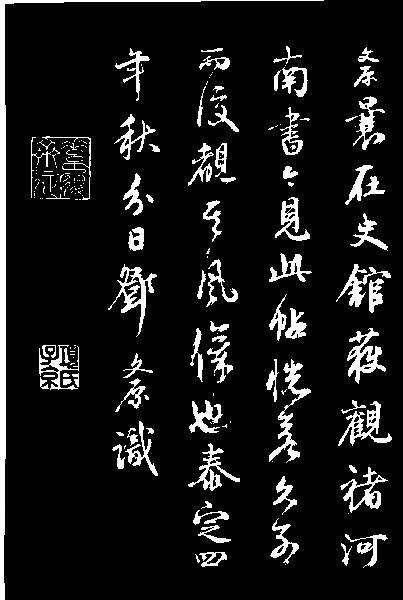 文原曩在史館獲觀褚河
南書今見此帖恍若久別
而復覩其風儀也泰定四
年秋分日鄧文原識
項氏
子京